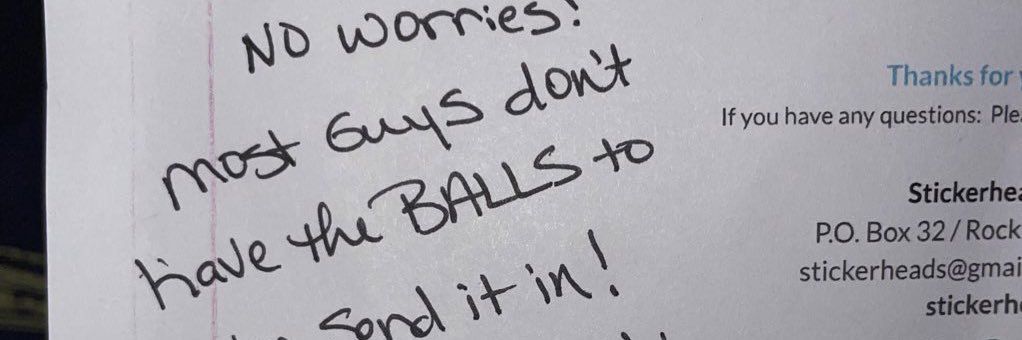 NO worries!
most Guys don't
have the BALLS to
send it in!
Thanks for
If you have any questions:
Stickerhea
P.O. Box 32 / Rock
stickerheads@gmai
stickerh